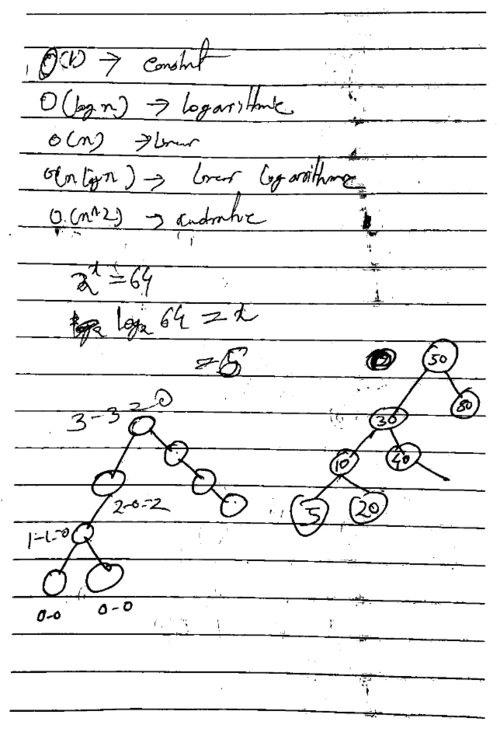 O(1) → constnt
O(log n) → logarithmic
O(n) → linear
O(n log n) → linear logarithmic
O(n^2) → quadratic
2^x = 64
log₂ 64 = x
= 6
50
30
80
10
40
5
20
3-3=0
2-0=2
1-1=0
0-0
0-0